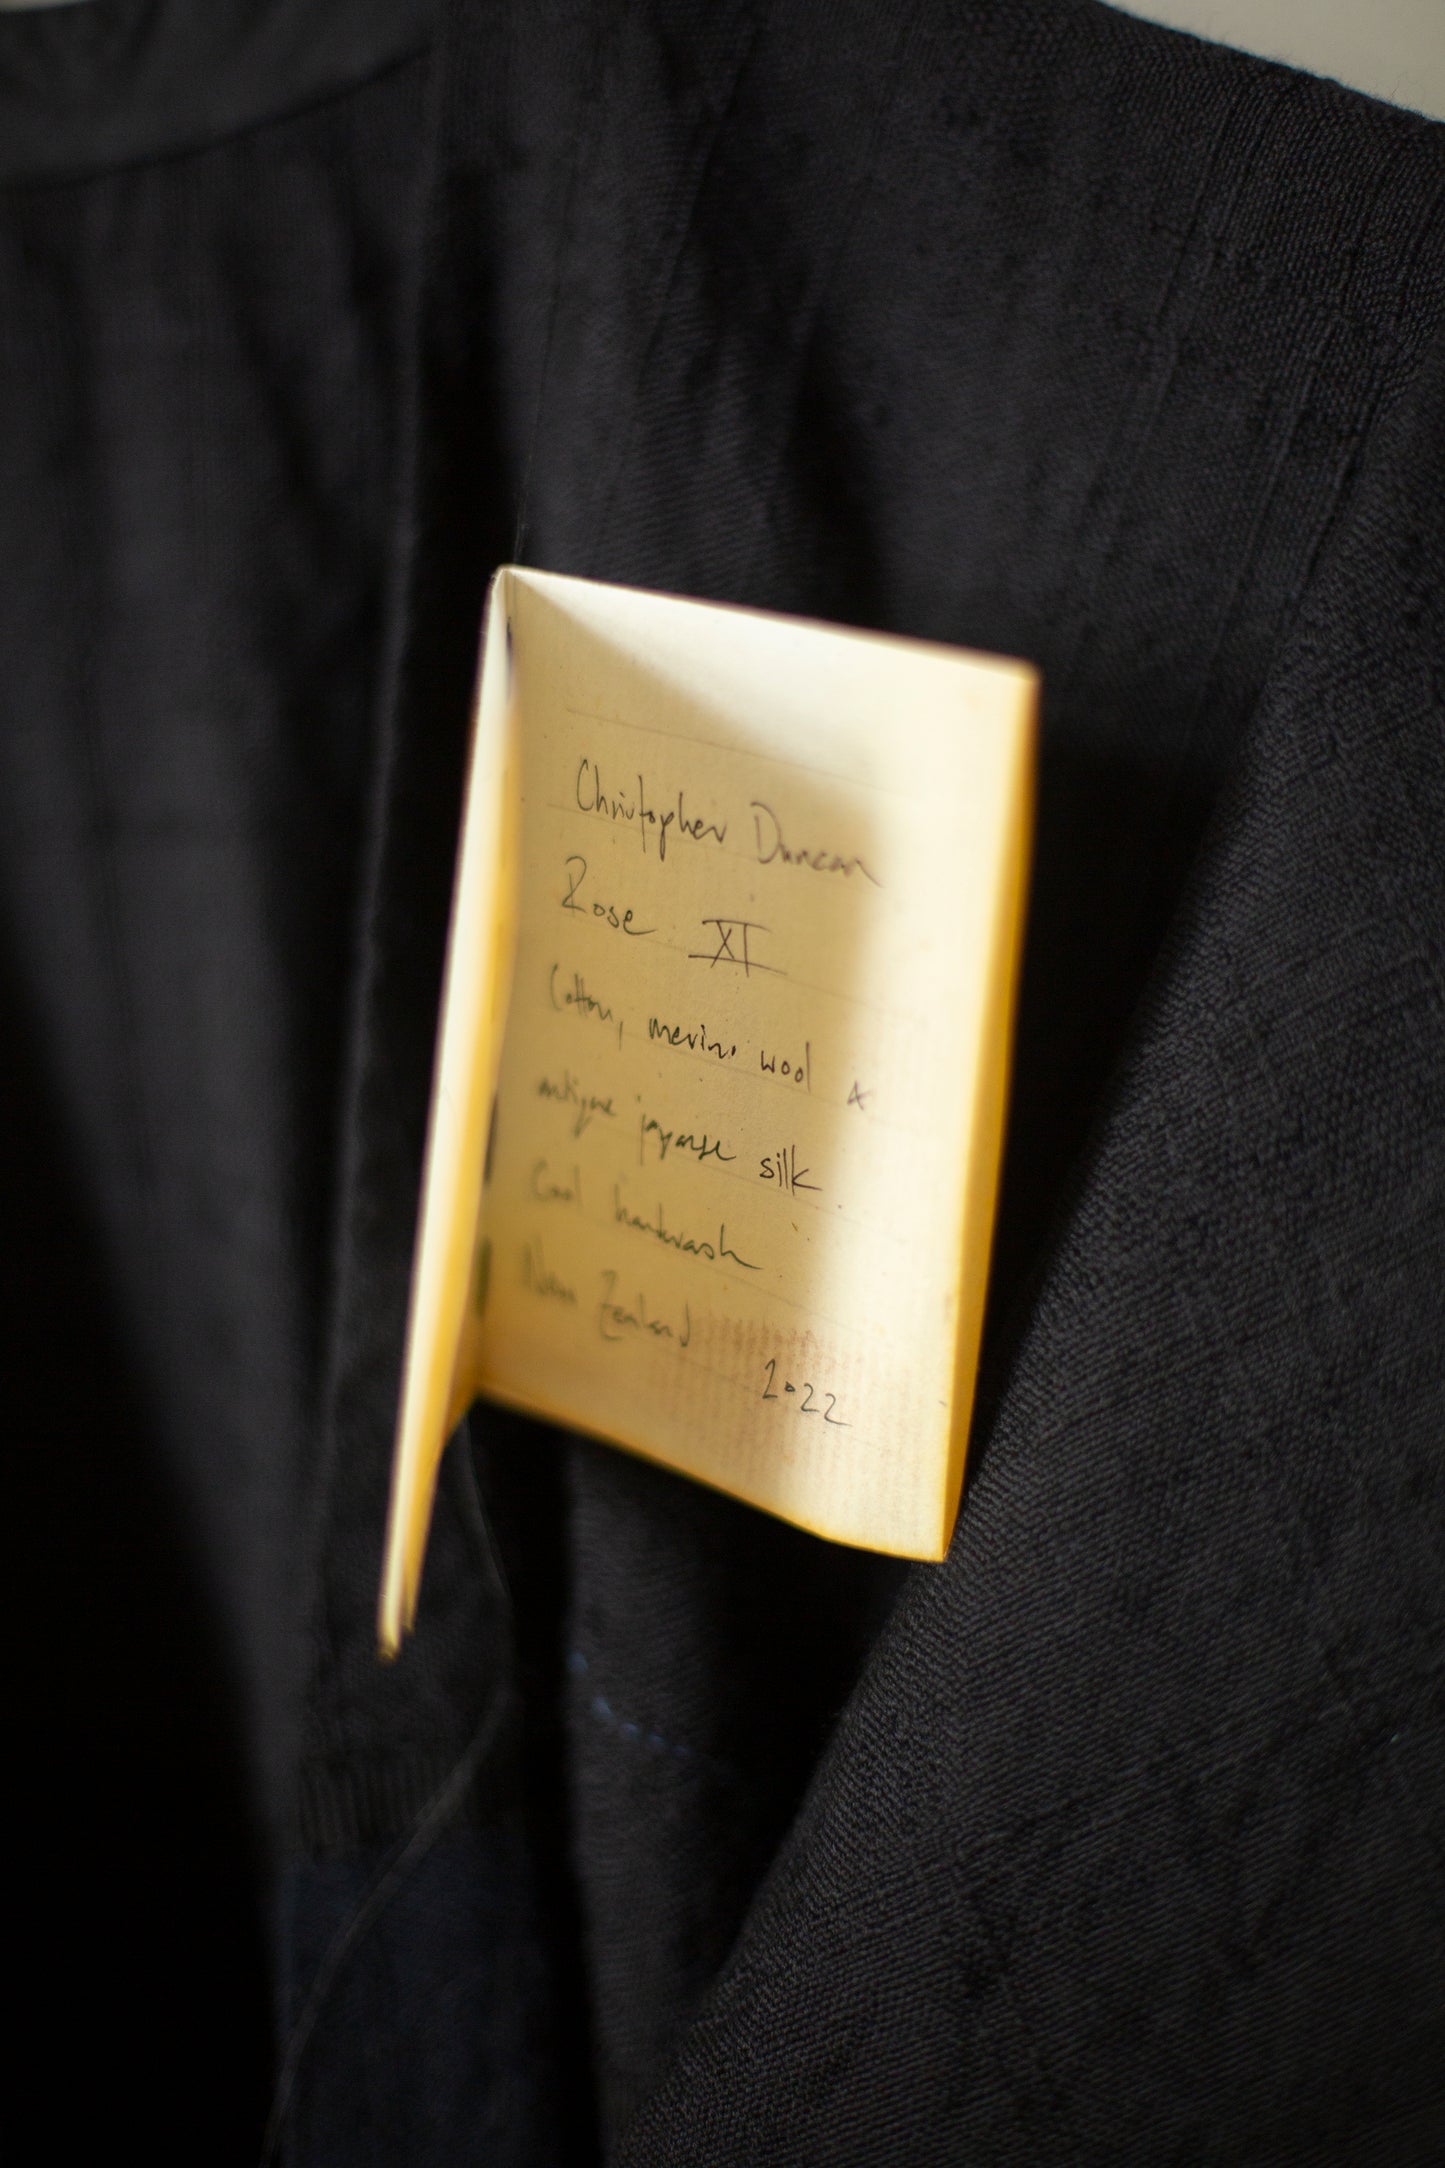 Christopher Duncan
Rose XI
Cotton, merino wool &
antique japanese silk
Cool handwash
New Zealand
2022